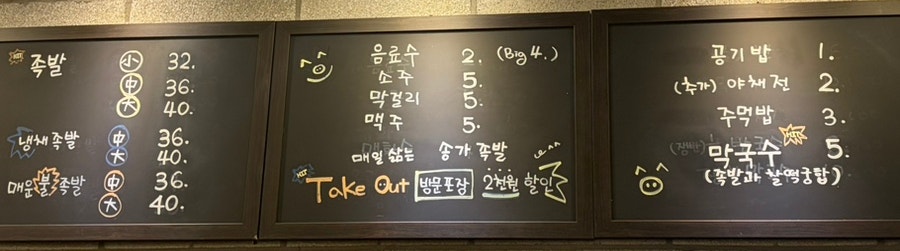 족발 小 32.
中 36.
大 40.
냉채족발 中 36.
大 40.
매운 족발 中 36.
大 40.
음료수 2. (Big 4.)
소주 5.
막걸리 5.
맥주 5.
매일 삶는 송가 족발
Take Out 방문포장 2천원 할인
공기밥 1.
(추가) 야채전 2.
주먹밥 3.
막국수 5.
(족발과 찰떡궁합)